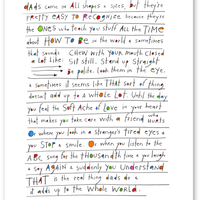 dADS come in ALL shapes & sizes, but they're
PRETTY EASY TO RECOGNISE because they're
the ONES who teach you stuff ALL the TIME
about HOW TO BE in the world & sometimes
that sounds CHEW WITH YOUR MOUTH CLOSED
a Lot Like: Sit still. Stand up Straight
Be polite. Look them in the eye.
& sometimes it seems like THAT sort of thing
doesn't add up to a WHOLE LOT. Until the day
you feel the Soft Ache of Love in your heart
that makes you take care with a friend who HURTS
Or when you look in a stranger's tired eyes &
you STOP & smile. Or when you listen to the
ABC song for the THOUSANDTH time & you laugh
& say AGAIN & suddenly you Understand
THAT is the real thing dads do &
it adds up to the Whole WORLD.